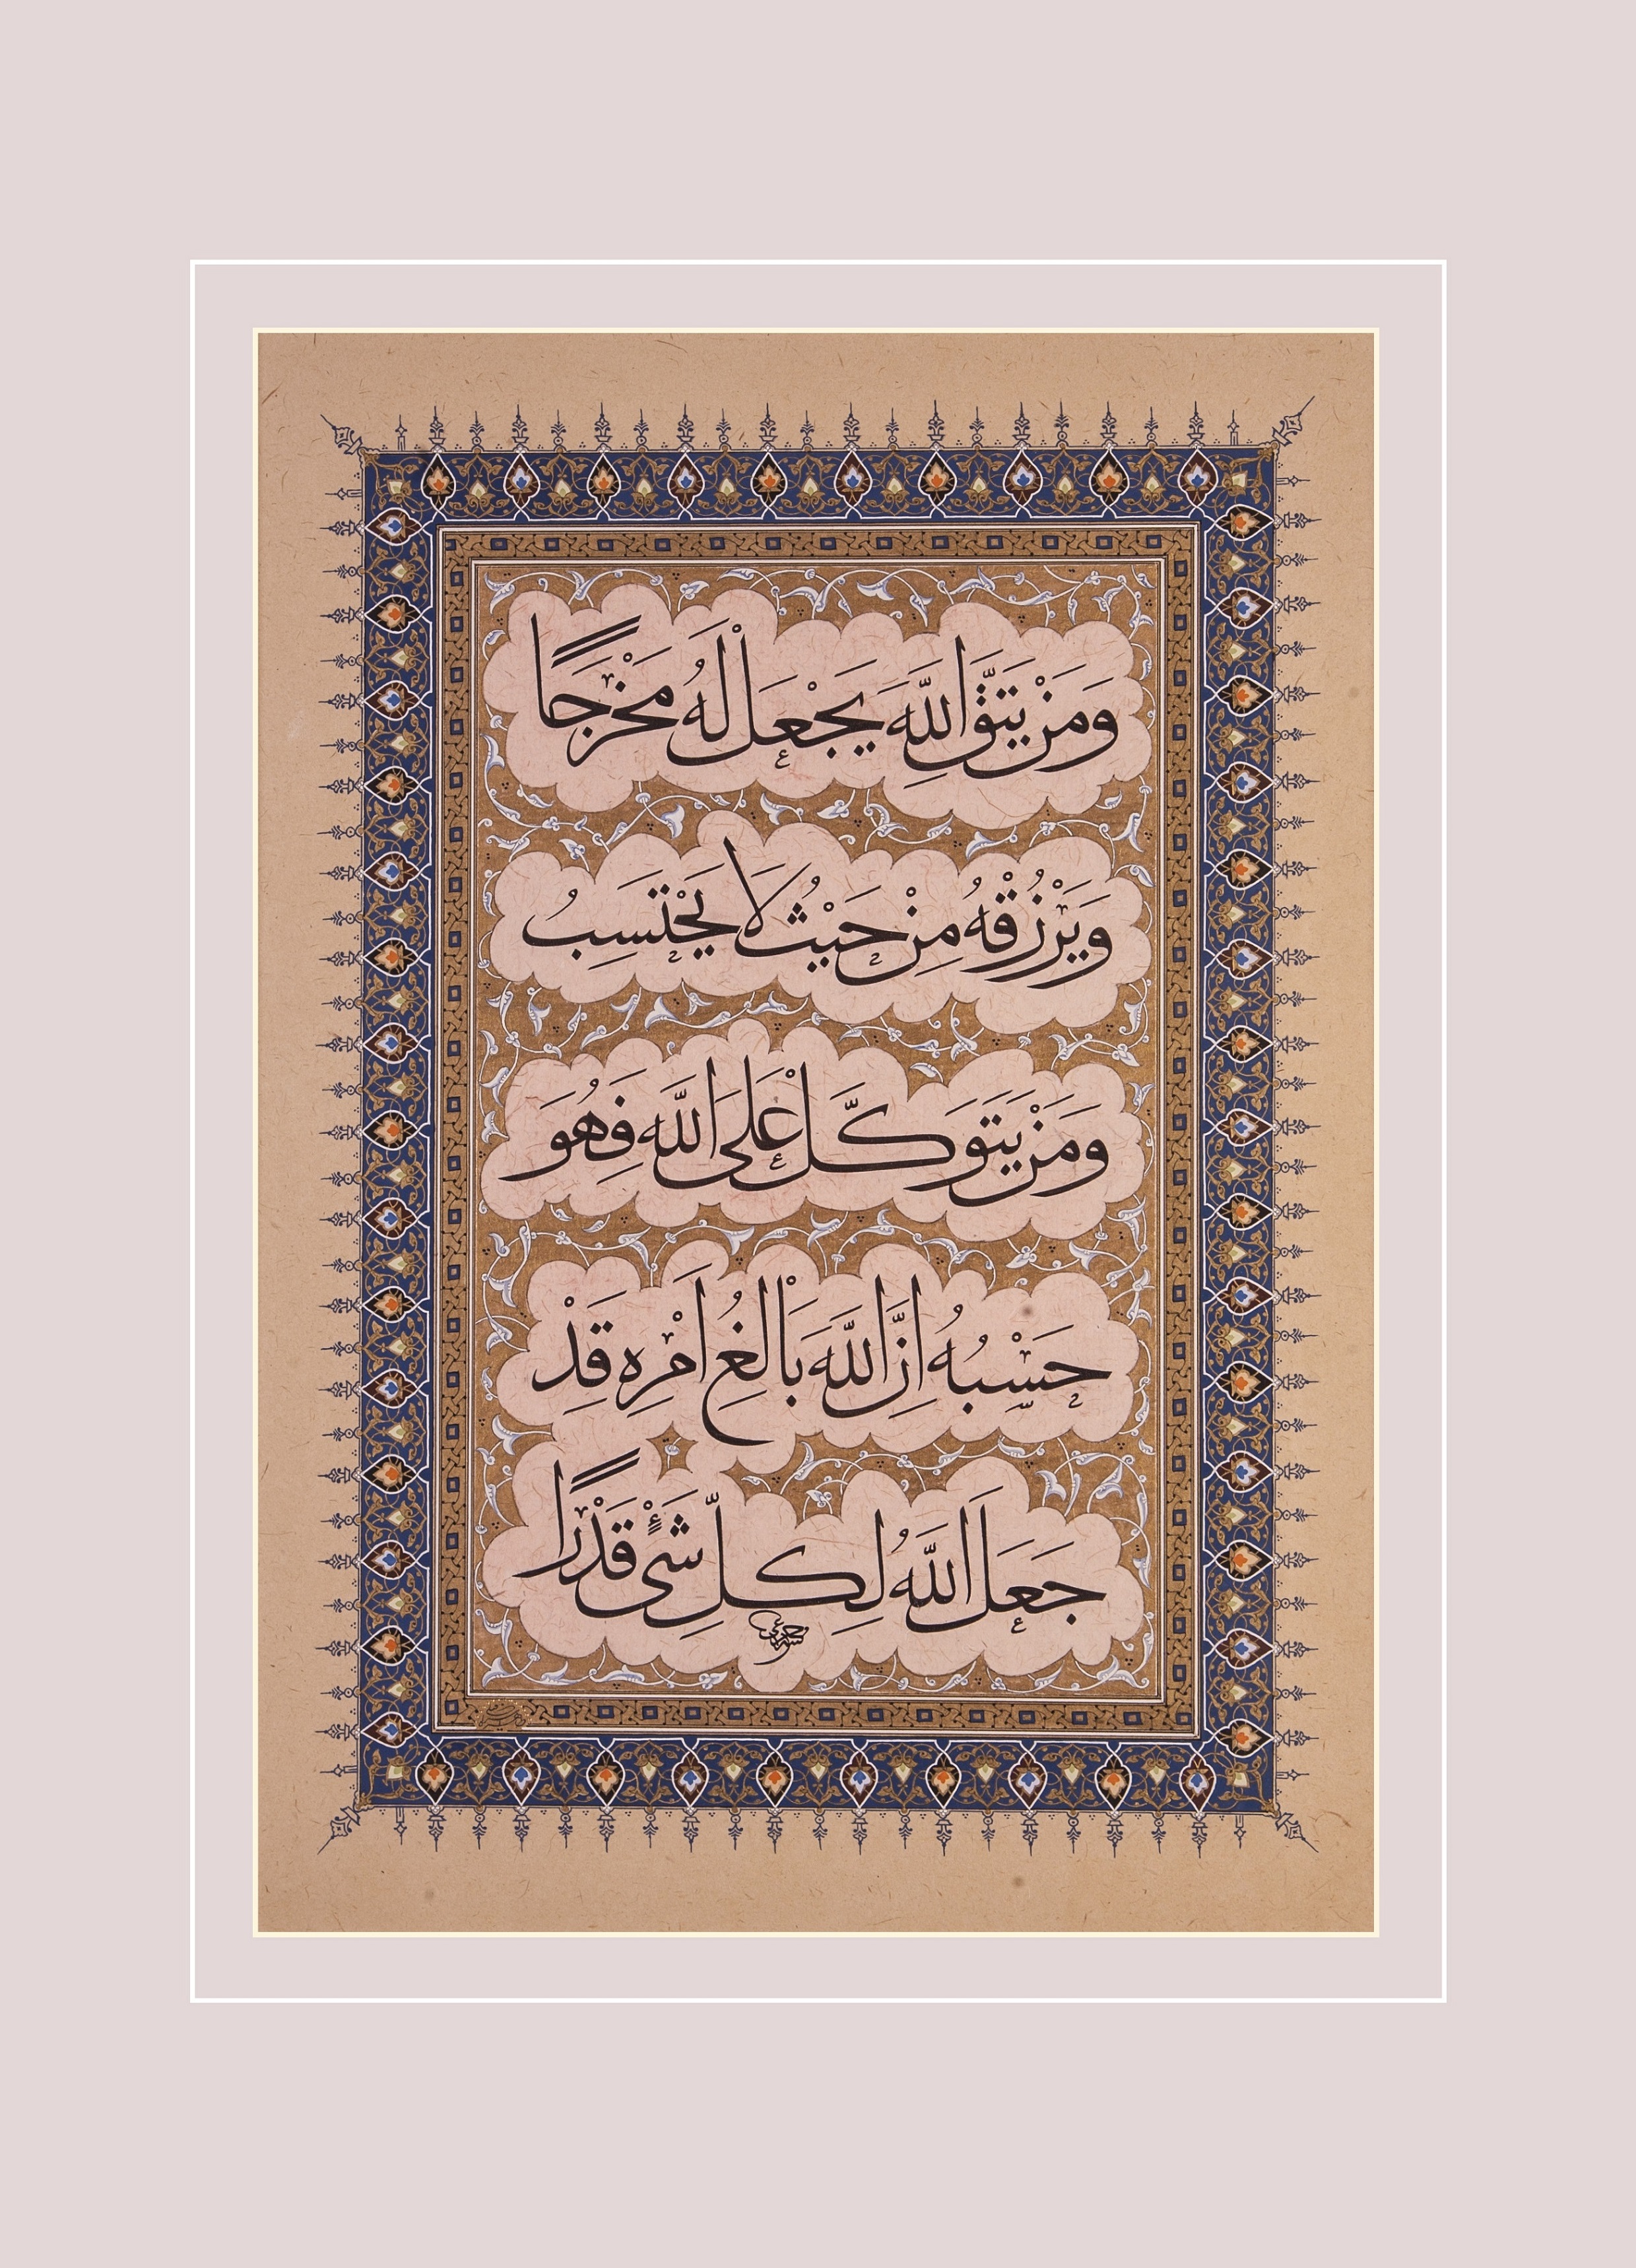 وَمَنْ يَتَّقِ اللَّهَ يَجْعَلْ لَهُ مَخْرَجًا
وَيَرْزُقْهُ مِنْ حَيْثُ لَا يَحْتَسِبُ
وَمَنْ يَتَوَكَّلْ عَلَى اللَّهِ فَهُوَ
حَسْبُهُ اِنَّ اللَّهَ بَالِغُ اَمْرِهِ قَدْ
جَعَلَ اللَّهُ لِكُلِّ شَیْءٍ قَدْرًا